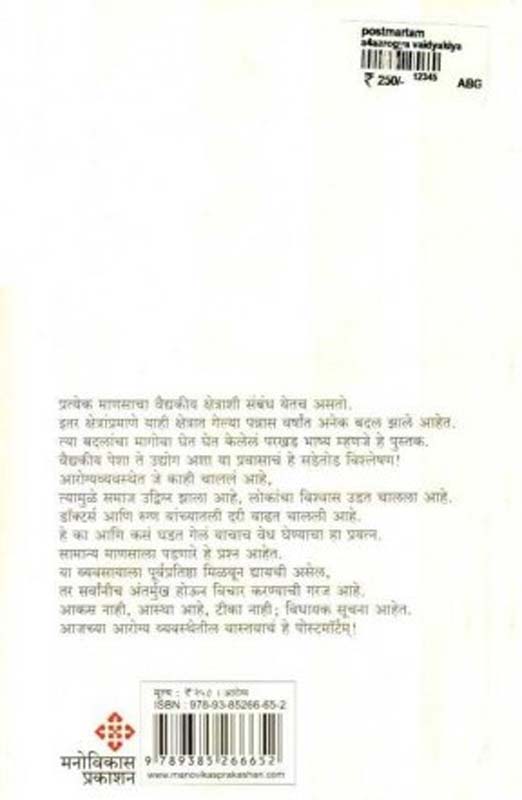 postmartam
a4aarogya vaidyakiya
₹ 250/- 12345 ABG
प्रत्येक माणसाचा वैद्यकीय क्षेत्राशी संबंध येतच असतो.
इतर क्षेत्रांप्रमाणे याही क्षेत्रात गेल्या पन्नास वर्षांत अनेक बदल झाले आहेत.
त्या बदलांचा मागोवा घेत घेत केलेलं परखड भाष्य म्हणजे हे पुस्तक.
वैद्यकीय पेशा ते उद्योग अशा या प्रवासाचं हे सडेतोड विश्लेषण!
आरोग्यव्यवस्थेत जे काही चाललं आहे,
त्यामुळे समाज उद्विग्न झाला आहे, लोकांचा विश्वास उडत चालला आहे.
डॉक्टर्स आणि रुग्ण यांच्यातली दरी वाढत चालली आहे.
हे का आणि कसं घडत गेलं याचाच वेध घेण्याचा हा प्रयत्न.
सामान्य माणसाला पडणारे हे प्रश्न आहेत.
या व्यवसायाला पूर्वप्रतिष्ठा मिळवून द्यायची असेल,
तर सर्वांनीच अंतर्मुख होऊन विचार करण्याची गरज आहे.
आकस नाही, आस्था आहे, टीका नाही; विधायक सूचना आहेत.
आजच्या आरोग्य व्यवस्थेतील वास्तवाचं हे पोस्टमॉर्टम्!
मूल्य : ₹ २५० । आरोग्य
ISBN : 978-93-85266-65-2
9 789385 266652
www.manovikasprakashan.com
मनोविकास
प्रकाशन